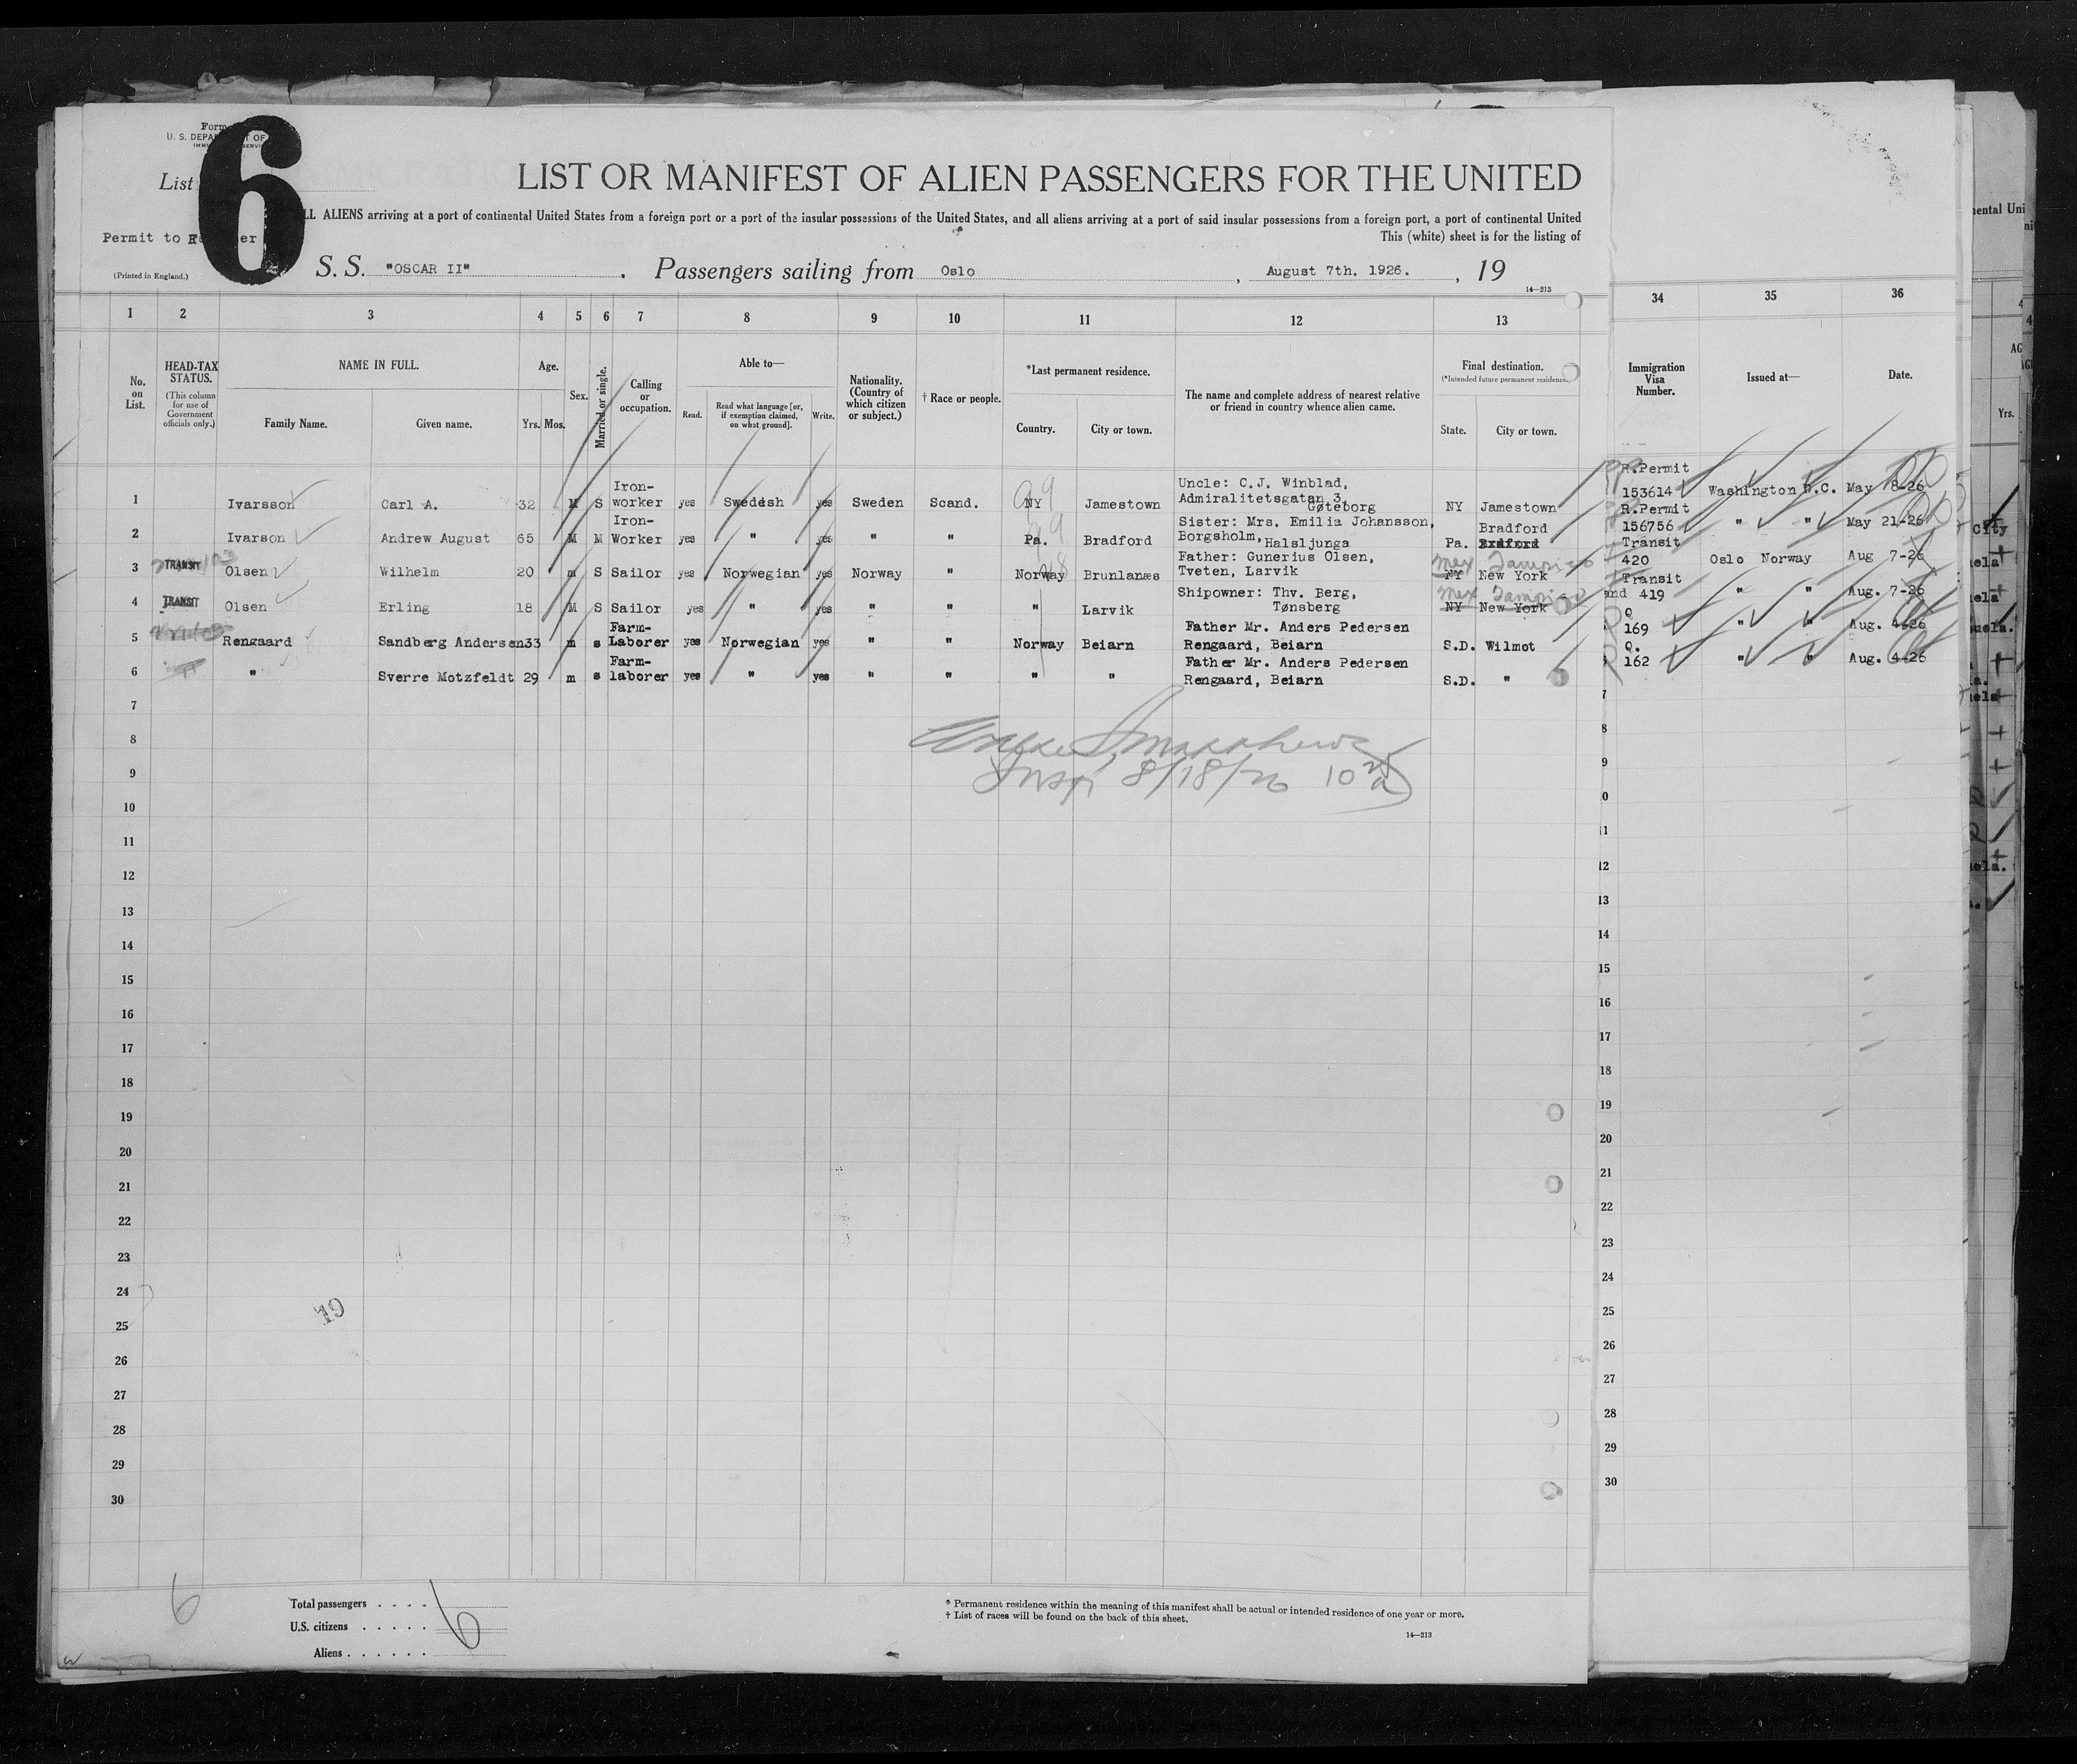 Form
U. S. DEPA T OF
6
List
LIST OR MANIFEST OF ALIEN PASSENGERS FOR THE UNITED
LL ALIENS arriving at a port of continental United States from a foreign port or a port of the insular possessions of the United States, and all aliens arriving at a port of said insular possessions from a foreign port, a port of continental United
Permit to
This (white) sheet is for the listing of
(Printed in England.)
S. S. "OSCAR II" . Passengers sailing from Oslo , August 7th. 1926. , 19
14—213
1 2 3 4 5 6 7 8 9 10 11 12 13 34 35 36
No. on List.
HEAD-TAX STATUS.
(This column for use of Government officials only.)
NAME IN FULL.
Family Name. Given name.
Age.
Yrs. Mos.
Sex.
Married or single.
Calling or occupation.
Able to—
Read. Read what language [or, if exemption claimed, on what ground]. Write.
Nationality. (Country of which citizen or subject.)
† Race or people.
*Last permanent residence.
Country. City or town.
The name and complete address of nearest relative or friend in country whence alien came.
Final destination.
(*Intended future permanent residence.)
State. City or town.
Immigration Visa Number.
Issued at—
Date.
1 Ivarsson Carl A. 32 M S Iron-worker yes Swedish yes Sweden Scand. NY Jamestown Uncle: C.J. Winblad, Admiralitetsgatan 3, Gøteborg NY Jamestown R.Permit 153614 Washington D.C. May 8-26
2 Ivarson Andrew August 65 M M Iron-Worker yes " yes " " Pa. Bradford Sister: Mrs. Emilia Johansson, Borgsholm, Halsljunga Pa. Bradford R.Permit 156756 " " May 21-26
3 TRANSIT Olsen Wilhelm 20 m S Sailor yes Norwegian yes Norway " Norway Brunlanæs Father: Gunerius Olsen, Tveten, Larvik Mex Tampico NY New York Transit 420 Oslo Norway Aug 7-26
4 TRANSIT Olsen Erling 18 M S Sailor yes " yes " " " Larvik Shipowner: Thv. Berg, Tønsberg Mex Tampico NY New York Transit 419 " " Aug. 7-26
5 Rengaard Sandberg Andersen 33 m s Farm-Laborer yes Norwegian yes " " Norway Beiarn Father Mr. Anders Pedersen Rengaard, Beiarn S.D. Wilmot Q 169 " " Aug. 4-26
6 " Sverre Motzfeldt 29 m s Farm-laborer yes " yes " " " " Father Mr. Anders Pedersen Rengaard, Beiarn S.D. " Q. 162 " " Aug. 4-26
7
8
9
Insp 8/18/26
10
11
12
13
14
15
16
17
18
19
20
21
22
23
24
25
26
27
28
29
30
19
6
Total passengers . . . .
U.S. citizens . . . . . 6
Aliens . . . . . .
* Permanent residence within the meaning of this manifest shall be actual or intended residence of one year or more.
† List of races will be found on the back of this sheet.
14—213